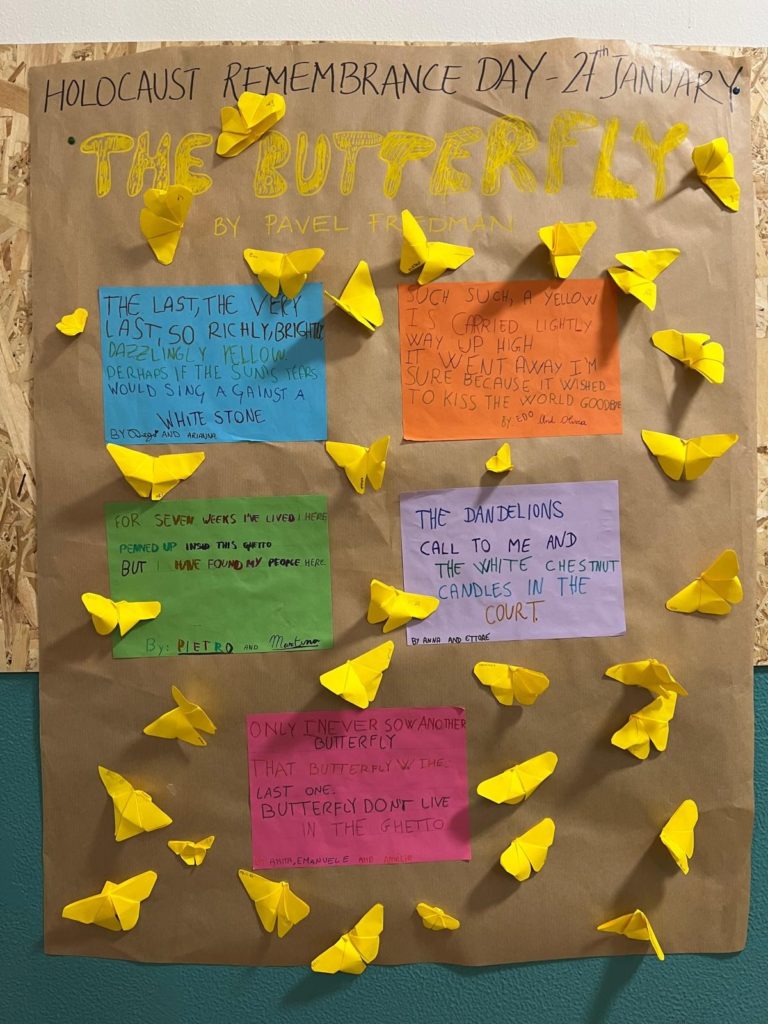 HOLOCAUST REMEMBRANCE DAY - 27th JANUARY
THE BUTTERFLY
BY PAVEL FRIEDMAN
THE LAST, THE VERY
LAST, SO RICHLY, BRIGHTLY,
DAZZLINGLY YELLOW.
PERHAPS IF THE SUN'S TEARS
WOULD SING A GAINST A
WHITE STONE
BY AND ARIANNA
SUCH SUCH, A YELLOW
IS CARRIED LIGHTLY
WAY UP HIGH
IT WENT AWAY I'M
SURE BECAUSE IT WISHED
TO KISS THE WORLD GOODBYE
BY: EDO and Olivia
FOR SEVEN WEEKS I'VE LIVED I HERE
PENNED UP INSID THIS GHETTO
BUT I HAVE FOUND MY PEOPLE HERE.
By: PIETRO AND Martino
THE DANDELIONS
CALL TO ME AND
THE WHITE CHESTNUT
CANDLES IN THE
COURT.
BY ANNA AND ETTORE
ONLY I NEVER SOW ANOTHER
BUTTERFLY
THAT BUTTERFLY W THE
LAST ONE.
BUTTERFLY DON'T LIVE
IN THE GHETTO
ANITA, EMANUELE AND AMALIA